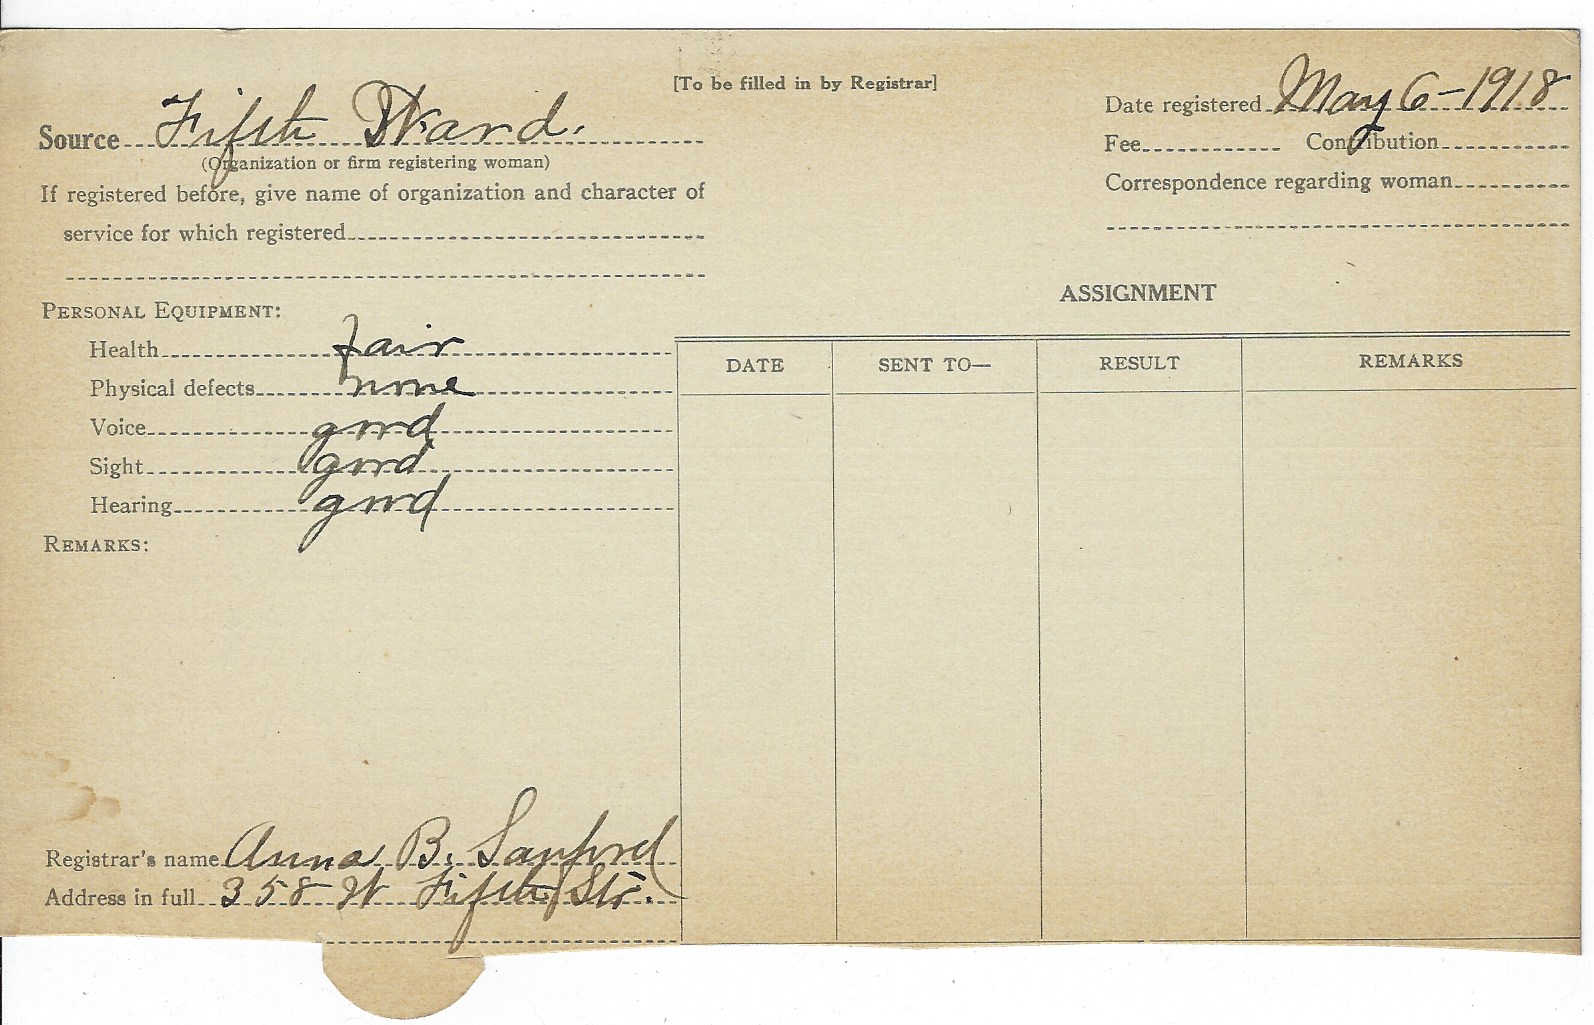 [To be filled in by Registrar]
Source Fifth Ward.
(Organization or firm registering woman)
If registered before, give name of organization and character of
service for which registered
Date registered May 6-1918
Fee Contribution
Correspondence regarding woman
PERSONAL EQUIPMENT:
Health fair
Physical defects none
Voice good
Sight good
Hearing good
REMARKS:
ASSIGNMENT
DATE SENT TO— RESULT REMARKS
Registrar's name Anna B. Sanford
Address in full 358 W Fifth Str.